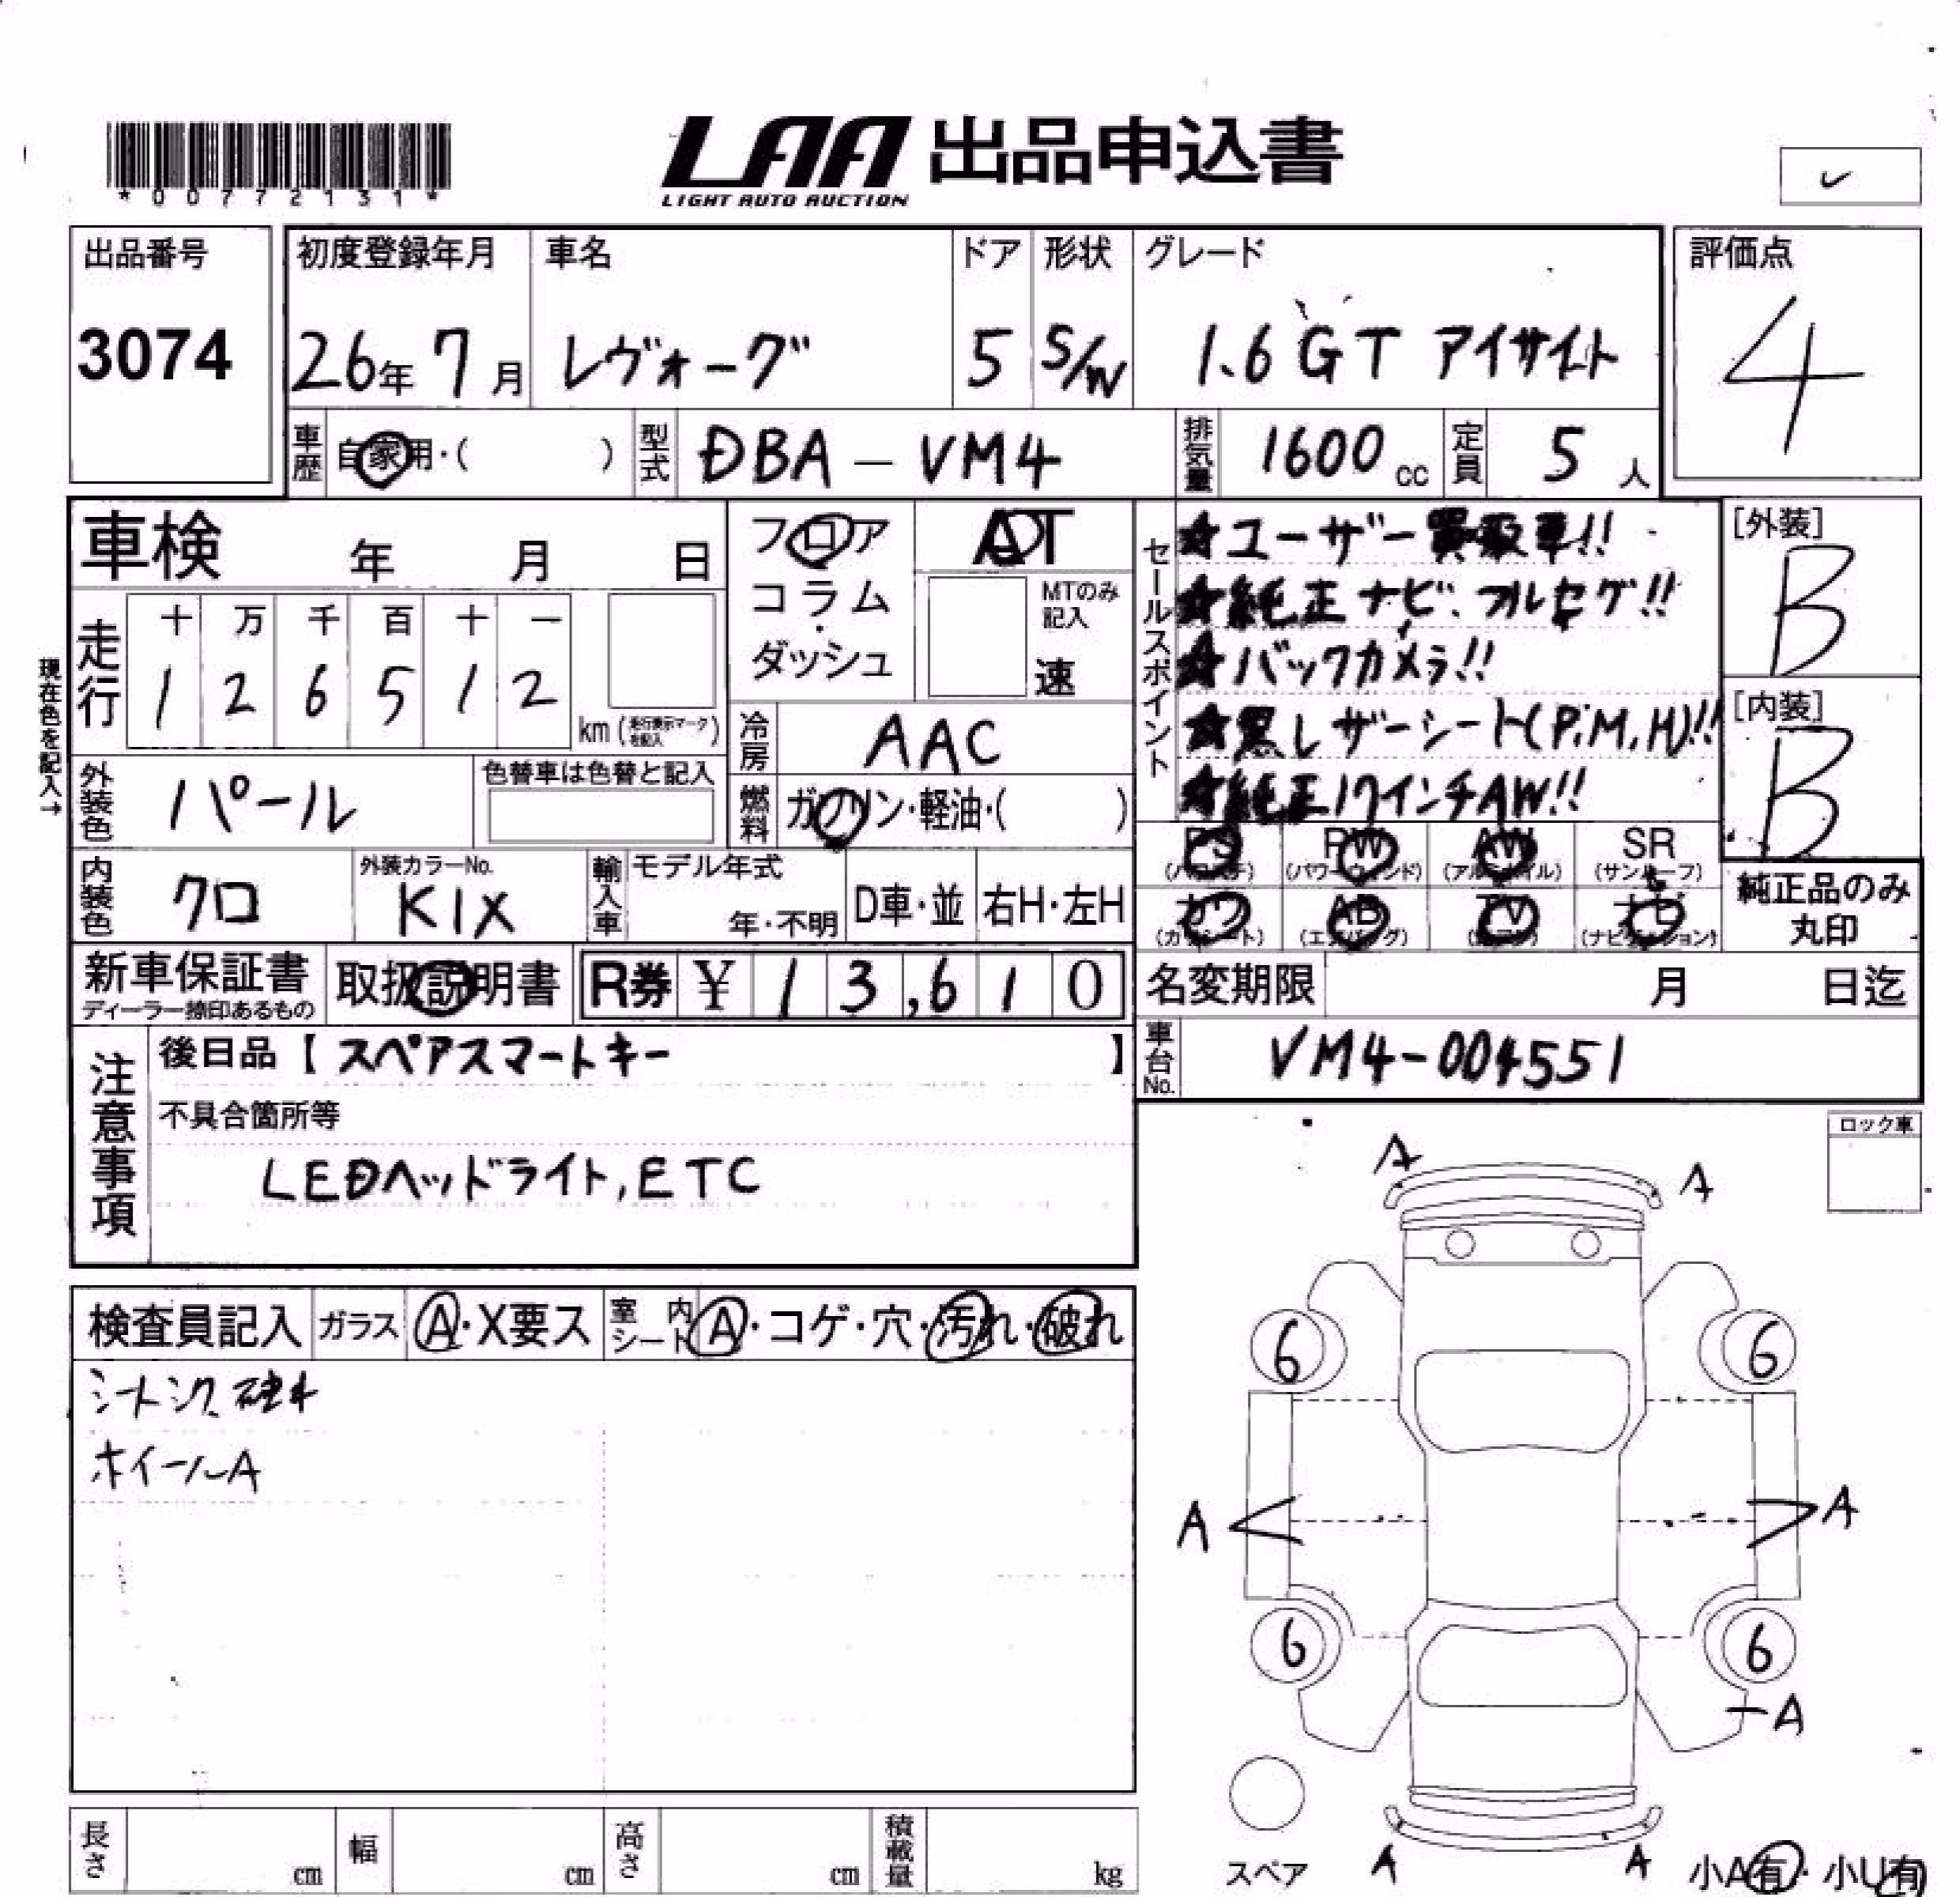 *00772131*
LAA 出品申込書
LIGHT AUTO AUCTION
出品番号
3074
初度登録年月
26年 7月
車名
レヴォーグ
ドア
5
形状
S/W
グレード
1.6 GT アイサイト
評価点
4
車歴 自家用・( )
型式 DBA-VM4
排気量 1600cc
定員 5人
車検 年 月 日
フロア
コラム
・
ダッシュ
AT
MTのみ記入
速
セールスポイント
★ユーザー買取車!!
★純正ナビ、フルセグ!!
★バックカメラ!!
★黒レザーシート(P,M,H)!!
★純正17インチAW!!
[外装]
B
[内装]
B
現在色を記入→
走行
十 万 千 百 十 一
1 2 6 5 1 2
km (走行表示マークを記入)
冷房 AAC
燃料 ガソリン・軽油・( )
外装色 パール
色替車は色替と記入
内装色 クロ
外装カラーNo.
K1X
輸入車
モデル年式
年・不明
D車・並
右H・左H
PS (パワステ)
PW (パワーウィンド)
AW (アルミホイル)
SR (サンルーフ)
カワ (カワシート)
AB (エアバッグ)
TV (テレビ)
ナビ (ナビゲーション)
純正品のみ
丸印
新車保証書
ディーラー捺印あるもの
取扱説明書
R券 ¥ 13,610
名変期限 月 日迄
車台No. VM4-004551
注意事項
後日品【スペアスマートキー】
不具合箇所等
LEDヘッドライト,ETC
ロック車
検査員記入
ガラス A・X要ス
室内シート A・コゲ・穴・汚れ・破れ
ホイールA
A
A
6
6
A
A
6
6
A
A
A
スペア
小A有・小U有
長さ cm
幅 cm
高さ cm
積載量 kg